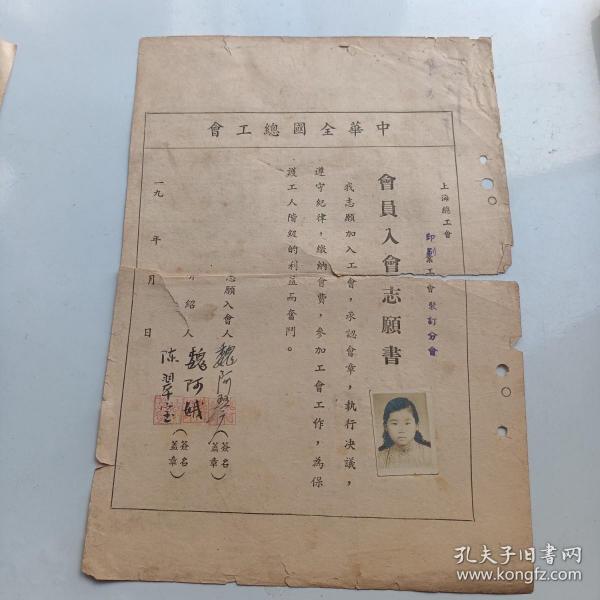 中華全國總工會
上海總工會
印刷業工會 裝訂分會
會員入會志願書
我志願加入工會，承認會章，執行決議，
遵守紀律，繳納會費，參加工會工作，為保
護工人階級的利益而奮鬥。
志願入會人 魏阿（簽名蓋章）
介紹人 魏阿娥（簽名蓋章）
陳翠宝
一九 年 月 日
孔夫子旧书网
www.kongfz.com